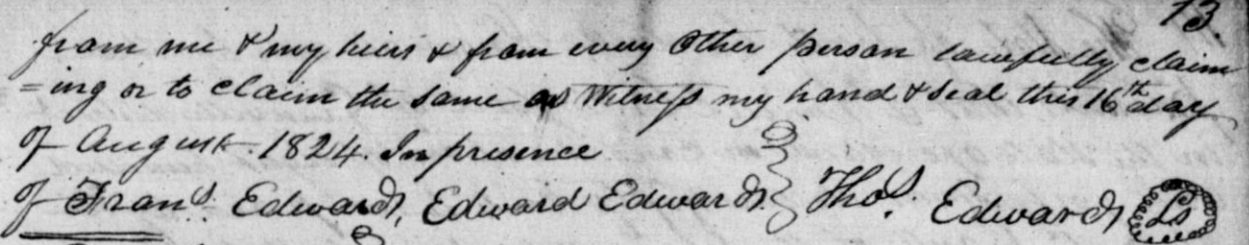 73.
from me & my heirs & from every Other person lawfully claim
=ing or to claim the same as Witness my hand & seal this 16th day
of August. 1824. In presence
of Frans. Edwards, Edward Edwards. Thos. Edwards Ls